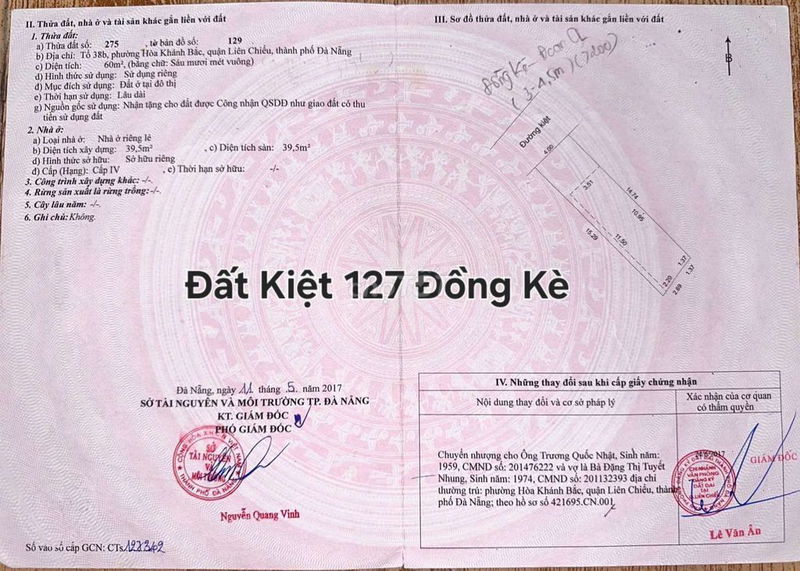 II. Thửa đất, nhà ở và tài sản khác gắn liền với đất
1. Thửa đất:
a) Thửa đất số: 275 , tờ bản đồ số: 129
b) Địa chỉ: Tổ 38b, phường Hòa Khánh Bắc, quận Liên Chiểu, thành phố Đà Nẵng
c) Diện tích: 60m², (bằng chữ: Sáu mươi mét vuông)
d) Hình thức sử dụng: Sử dụng riêng
đ) Mục đích sử dụng: Đất ở tại đô thị
e) Thời hạn sử dụng: Lâu dài
g) Nguồn gốc sử dụng: Nhận tặng cho đất được Công nhận QSDĐ như giao đất có thu
tiền sử dụng đất
2. Nhà ở:
a) Loại nhà ở: Nhà ở riêng lẻ
b) Diện tích xây dựng: 39,5m² , c) Diện tích sàn: 39,5m²
d) Hình thức sở hữu: Sở hữu riêng
đ) Cấp (Hạng): Cấp IV , e) Thời hạn sở hữu: -/-
3. Công trình xây dựng khác: -/-
4. Rừng sản xuất là rừng trồng:-/-
5. Cây lâu năm: -/-
6. Ghi chú:Không.
III. Sơ đồ thửa đất, nhà ở và tài sản khác gắn liền với đất
B
Đồng Kè
(3-4,5m)(7200)
Đường kiệt
4.00
3.51
14.74
10.95
15.29
11.50
2.20
1.37
1.37
2.69
Đất Kiệt 127 Đồng Kè
Đà Nẵng, ngày 11 tháng 5. năm 2017
SỞ TÀI NGUYÊN VÀ MÔI TRƯỜNG TP. ĐÀ NẴNG
KT. GIÁM ĐỐC
PHÓ GIÁM ĐỐC
CỘNG HÒA XÃ HỘI VIỆT NAM
SỞ
TÀI NGUYÊN
VÀ
MÔI TRƯỜNG
THÀNH PHỐ ĐÀ NẴNG
Nguyễn Quang Vinh
Số vào sổ cấp GCN: CTs
IV. Những thay đổi sau khi cấp giấy chứng nhận
Nội dung thay đổi và cơ sở pháp lý
Xác nhận của cơ quan
có thẩm quyền
Chuyển nhượng cho Ông Trương Quốc Nhật, Sinh năm:
1959, CMND số: 201476222 và vợ là Bà Đặng Thị Tuyết
Nhung, Sinh năm: 1974, CMND số: 201132393 địa chỉ
thường trú: phường Hòa Khánh Bắc, quận Liên Chiểu, thành
phố Đà Nẵng; theo hồ sơ số 421695.CN.001
2017
GIÁM ĐỐC
CHI NHÁNH
VĂN PHÒNG
ĐĂNG KÝ
ĐẤT ĐAI
TẠI
Q.LIÊN CHIỂU
Lê Văn Ẩn